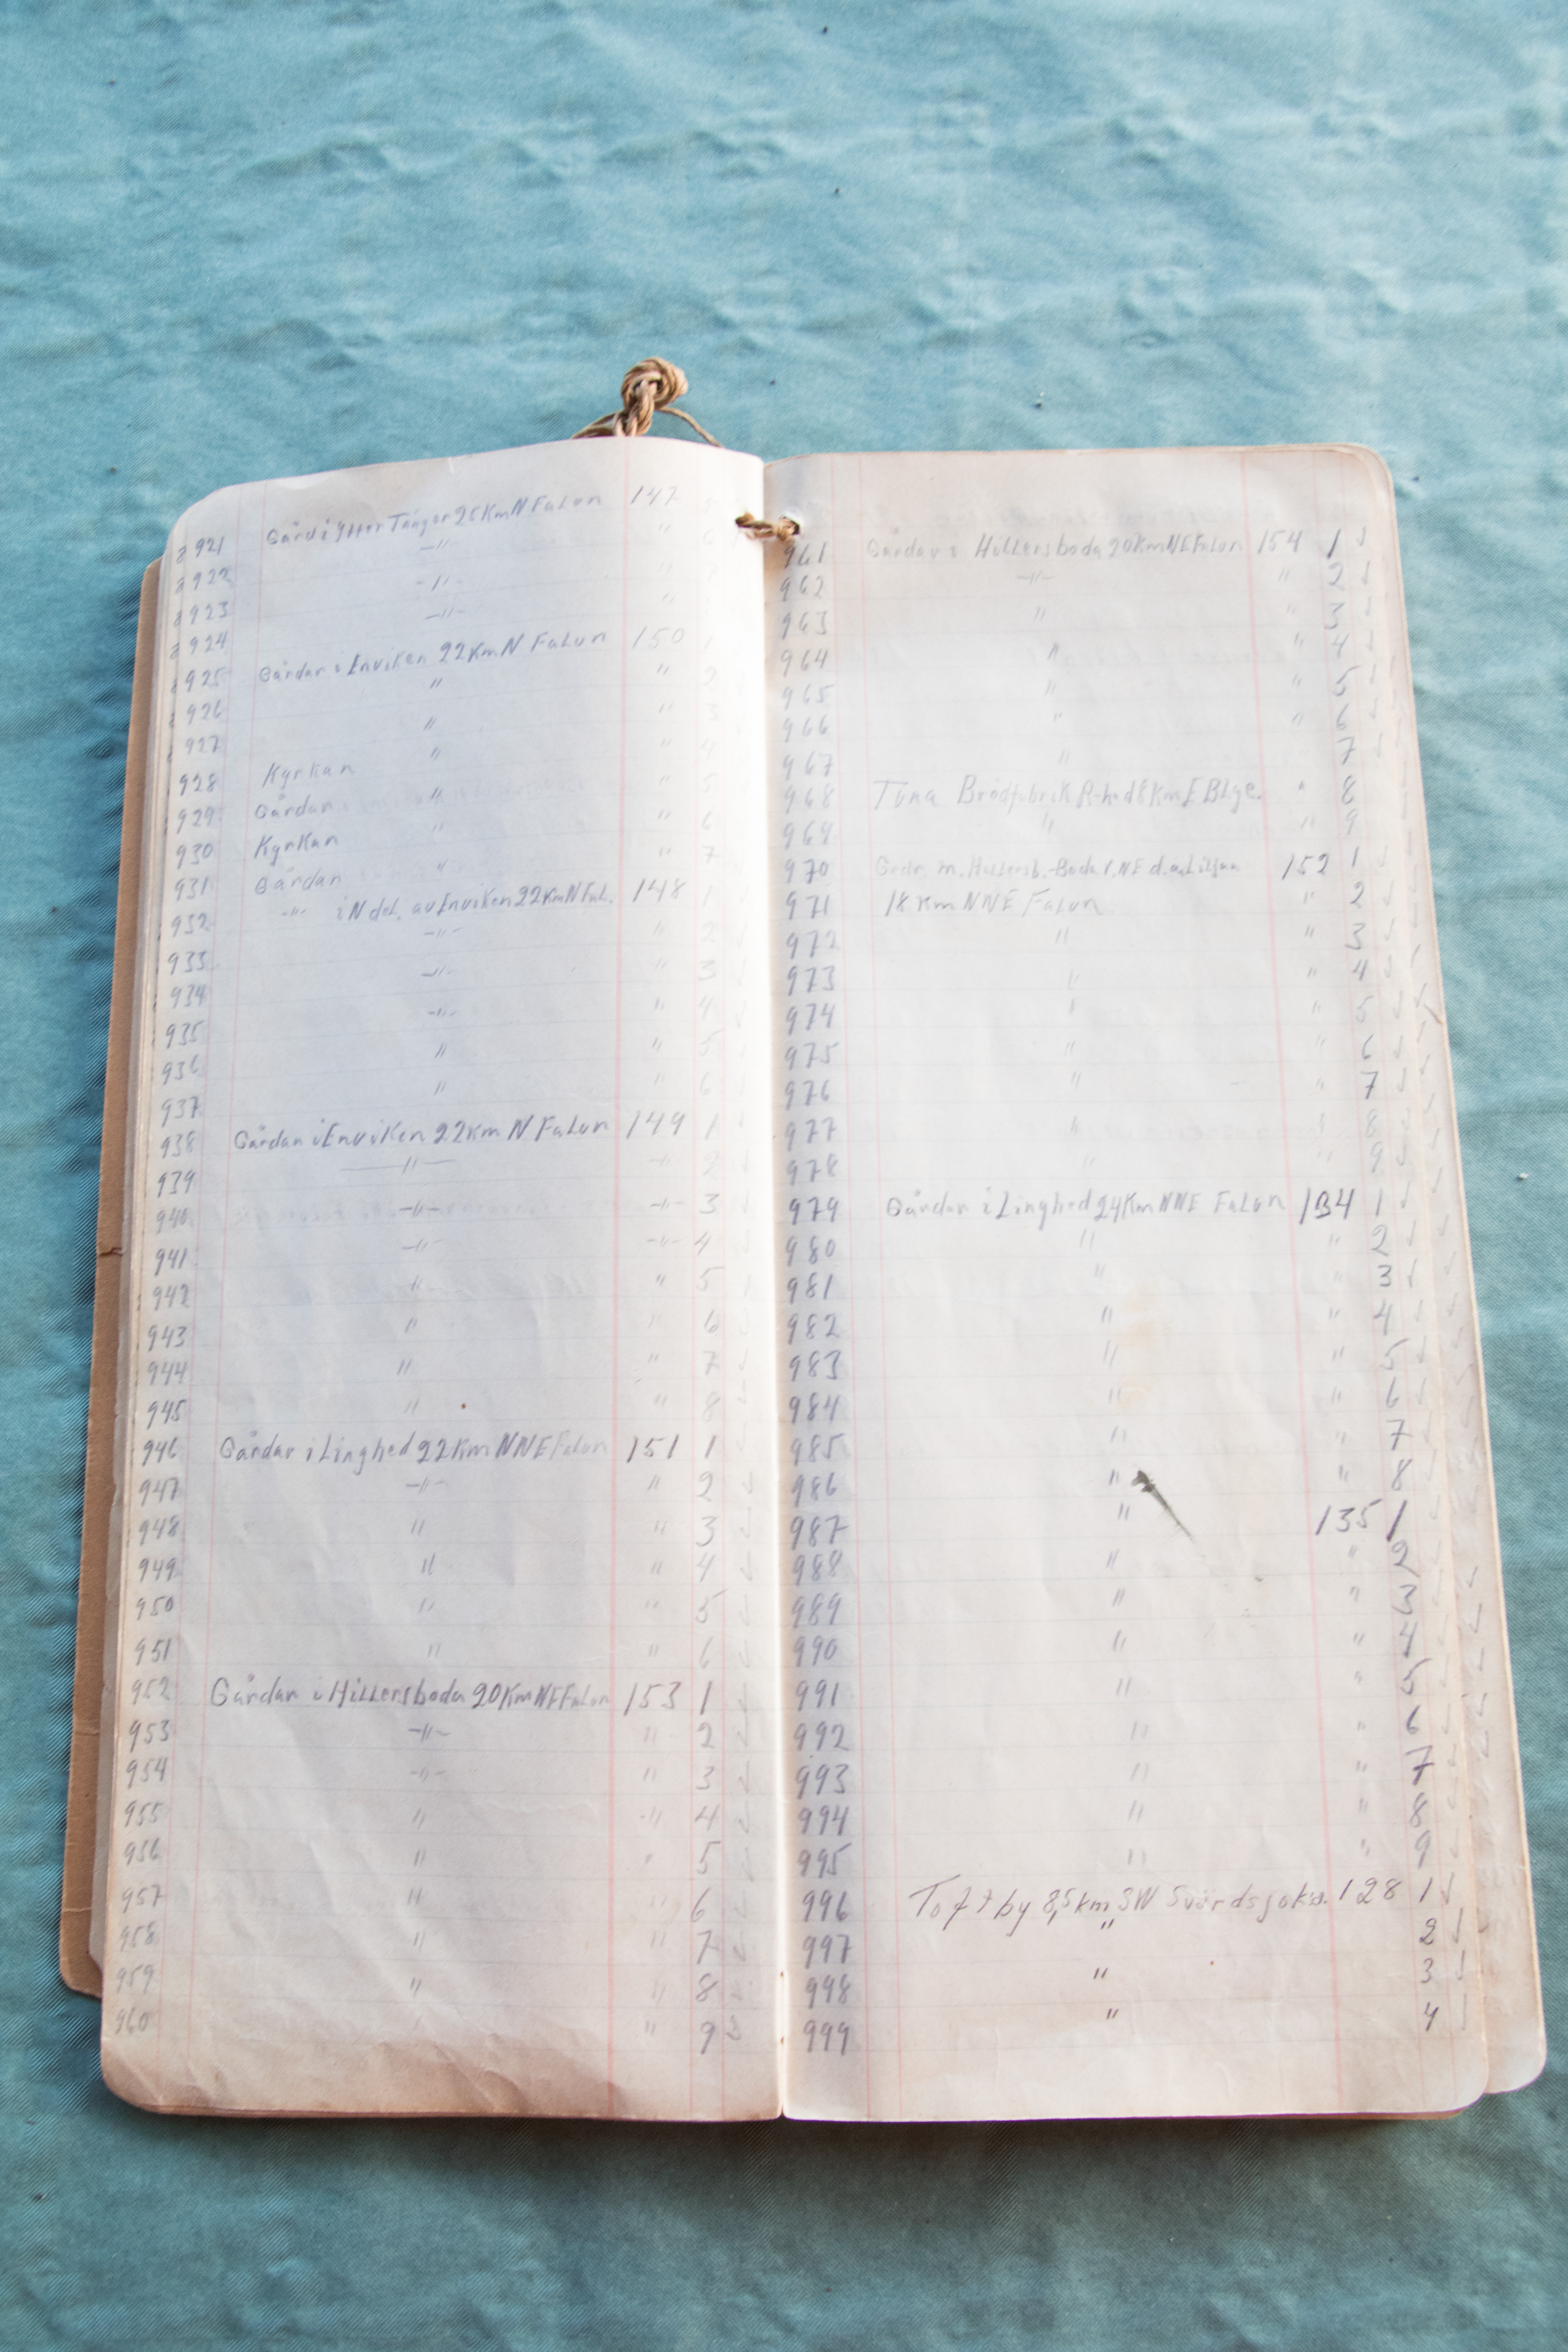 921 Gård i Ytter Tänger 25 Km N Falun 147 5
922 -"- " 6
923 -"- "
924 -"- "
925 Gårdar i Enviken 22 Km N Falun 150 1
926 " " 2
927 " " 3
928 Kyrkan " 4
929 Gårdan " " 5
930 Kyrkan " " 6
931 Gårdan " " 7
932 -"- i N del. av Enviken 22 Km N Fal. 148 1
933 -"- " 2
934 -"- " 3
935 -"- " 4
936 " " 5
937 " " 6
938 Gårdar i Enviken 22 km N Falun 149 1
939 -"- -"- 2
940 -"- -"- 3
941 -"- -"- 4
942 " " 5
943 " " 6
944 " " 7
945 " " 8
946 Gårdar i Linghed 22 Km NNE Falun 151 1
947 -"- " 2
948 " " 3
949 " " 4
950 " " 5
951 " " 6
952 Gårdar i Hillersboda 20 Km NE Falun 153 1
953 -"- " 2
954 -"- " 3
955 " " 4
956 " " 5
957 " " 6
958 " " 7
959 " " 8
960 " 9
961 Gårdar i Hillersboda 20 Km NE Falun 154 1
962 -"- " 2
963 " " 3
964 " " 4
965 " " 5
966 " " 6
967 " 7
968 Tuna Brödfabrik 8 Km E Blge. " 8
969 " " 9
970 m. Hillersb.-Boda 152 1
971 18 Km NNE Falun " 2
972 " " 3
973 " " 4
974 " " 5
975 " " 6
976 " " 7
977 " " 8
978 " " 9
979 Gårdar i Linghed 24 Km NNE Falun 134 1
980 " " 2
981 " " 3
982 " " 4
983 " " 5
984 " " 6
985 " " 7
986 " " 8
987 " 135 1
988 " " 2
989 " " 3
990 " " 4
991 " " 5
992 " " 6
993 " " 7
994 " " 8
995 " " 9
996 Toftby 8,5 km SW 128 1
997 " 2
998 " 3
999 " 4